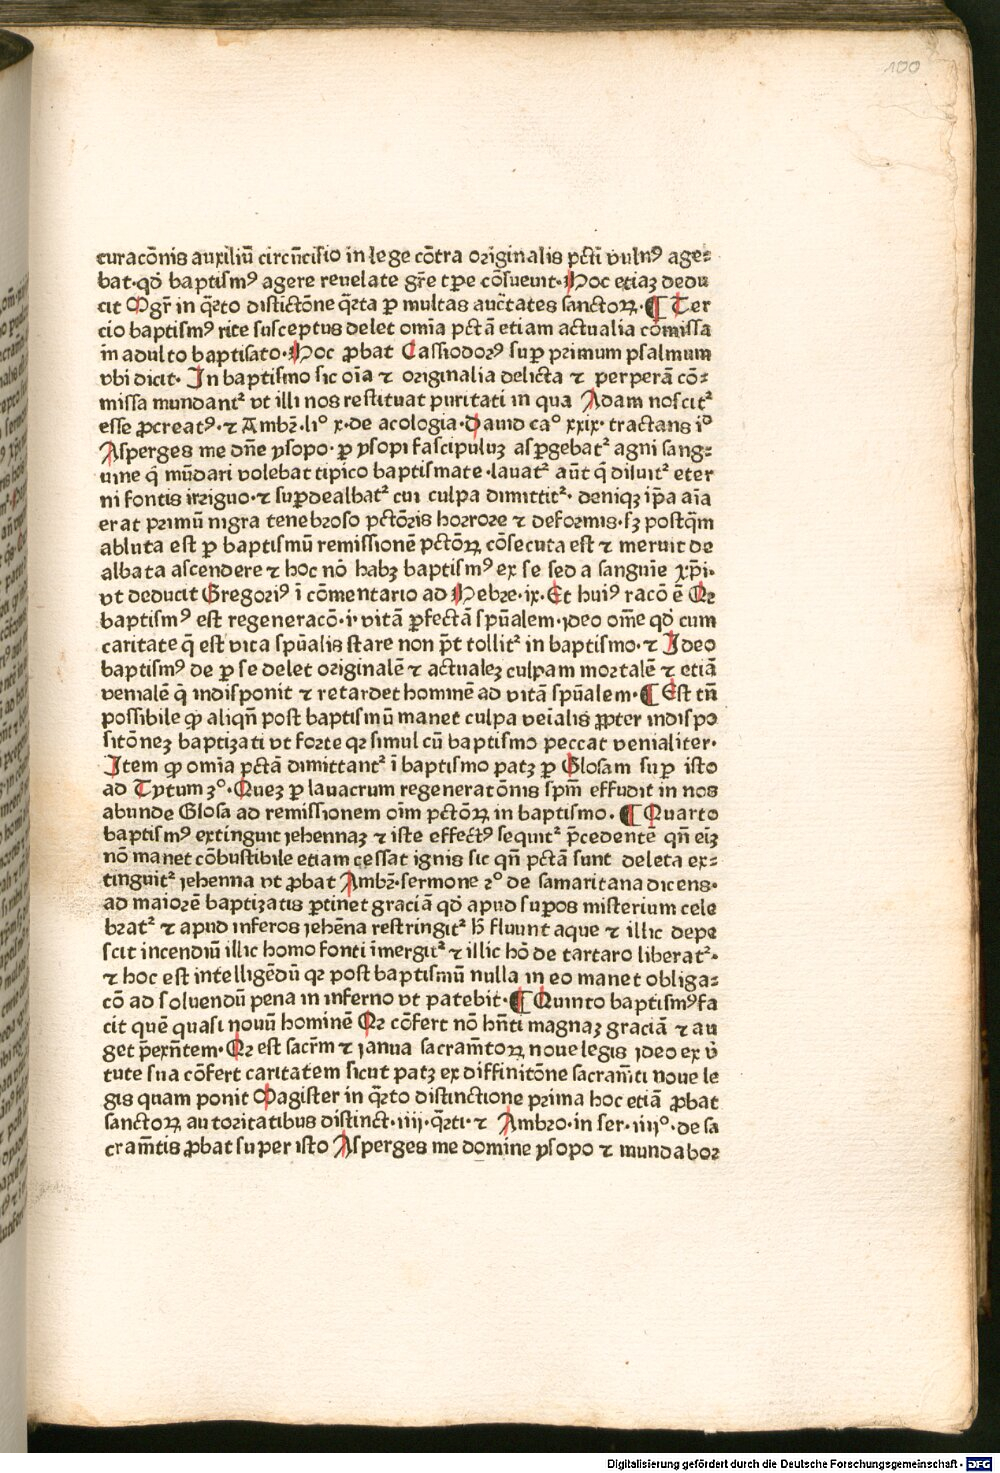 100
curacõnis auxiliũ circũcisio in lege cõtra originalis pcti vulnꝰ age⸗
bat·qd̃ baptismꝰ agere reuelate grẽ tp̃e cõsueuit·Hoc etiaꝫ dedu
cit Mgr̃ in q̃rto distictõne q̃rta ꝑ multas auc̃tates sanctoꝝ·¶ Ter
cio baptismꝰ rite susceptus delet om̃ia pctã etiam actualia cõmissa
in adulto baptisato·Hoc ꝓbat Cassiodorꝰ suꝑ primum psalmum
vbi dicit· In baptismo sic oĩa ⁊ originalia delicta ⁊ perperã cõ⸗
missa mundantᷣ vt illi nos restituat puritati in qua Adam noscitᷣ
esse ꝓcreatꝰ·⁊ Ambꝛ̃·liº x·de acologia·Dauid caº xxix·tractans iº
Asperges me dñe ysopo·ꝑ ysopi fascipuluꝫ asꝑgebatᷣ agni sang⸗
uine q̃ mũdari volebat tipico baptismate·lauatᷣ aũt q̃ diluitᷣ eter
ni fontis irriguo·⁊ suꝑdealbatᷣ cui culpa dimittitᷣ· deniqꝫ ip̃a aĩa
erat primũ nigra tenebroso pctõris horrore ⁊ deformis·sꝫ postq̃m
abluta est ꝑ baptismũ remissionẽ pctõꝝ cõsecuta est ⁊ meruit de
albata ascendere ⁊ hoc nõ habꝫ baptismꝰ ex se sed a sanguĩe xp̃i·
vt deducit Gregoriꝰ ĩ cõmentario ad Hebre·ix·Et huiꝰ racõ ẽ Qꝛ
baptismꝰ est regeneracõ·i· vitã ꝑfectã spũalem·ideo om̃e qd̃ cum
caritate q̃ est vita spũalis stare non p̃t tollitᷣ in baptismo·⁊ Ideo
baptismꝰ de ꝑ se delet originalẽ ⁊ actualeꝫ culpam mortalẽ ⁊ etiã
venialẽ q̃ indisponit ⁊ retardet hominẽ ad vitã spũalem·¶ Est tñ
possibile ꝙ aliqñ post baptismũ manet culpa veĩalis ꝓpter indispo
sitõneꝫ baptizati vt forte qꝛ simul cũ baptismo peccat venialiter·
Item ꝙ om̃ia pctã dimittantᷣ ĩ baptismo patꝫ ꝑ Glosam suꝑ isto
ad Tytum 3º·Queꝫ ꝑ lauacrum regeneratõnis spm̃ effudit in nos
abunde Glosa ad remissionem oĩm pctõꝝ in baptismo·¶ Quarto
baptismꝰ extinguit jehennaꝫ ⁊ iste effectꝰ sequitᷣ p̃cedentẽ qñ eĩꝫ
nõ manet cõbustibile etiam cessat ignis sic qñ pctã sunt deleta ex⸗
tinguitᷣ jehenna vt ꝓbat Ambꝛ̃·sermone 2º de samaritana dicens·
ad maiorẽ baptizatis ꝑtinet graciã qd̃ apud suꝑos misterium cele
bratᷣ ⁊ apud inferos jehẽna restringitᷣ h̃ fluunt aque ⁊ illic depe
scit incendiũ illic homo fonti ĩmergitᷣ ⁊ illic hõ de tartaro liberatᷣ·
⁊ hoc est intelligẽdũ qꝛ post baptismũ nulla in eo manet obliga⸗
cõ ad soluendũ pena in inferno vt patebit·¶ Quinto baptismꝰ fa
cit quẽ quasi nouũ hominẽ Qꝛ cõfert nõ hñti magnaꝫ graciã ⁊ au
get p̃exñtem·Qꝛ est sacr̃m ⁊ ianua sacram̃toꝝ noue legis ideo ex v̾
tute sua cõfert caritatem sicut patꝫ ex diffinitõne sacram̃ti noue le
gis quam ponit Magister in q̃rto distinctione prima hoc etiã ꝓbat
sanctoꝝ autoritatibus distinct·iiij·q̃rti·⁊ Ambro·in ser·iiijº·de sa
cram̃tis ꝓbat super isto Asperges me domine ysopo ⁊ mundabor
Digitalisierung gefördert durch die Deutsche Forschungsgemeinschaft - DFG